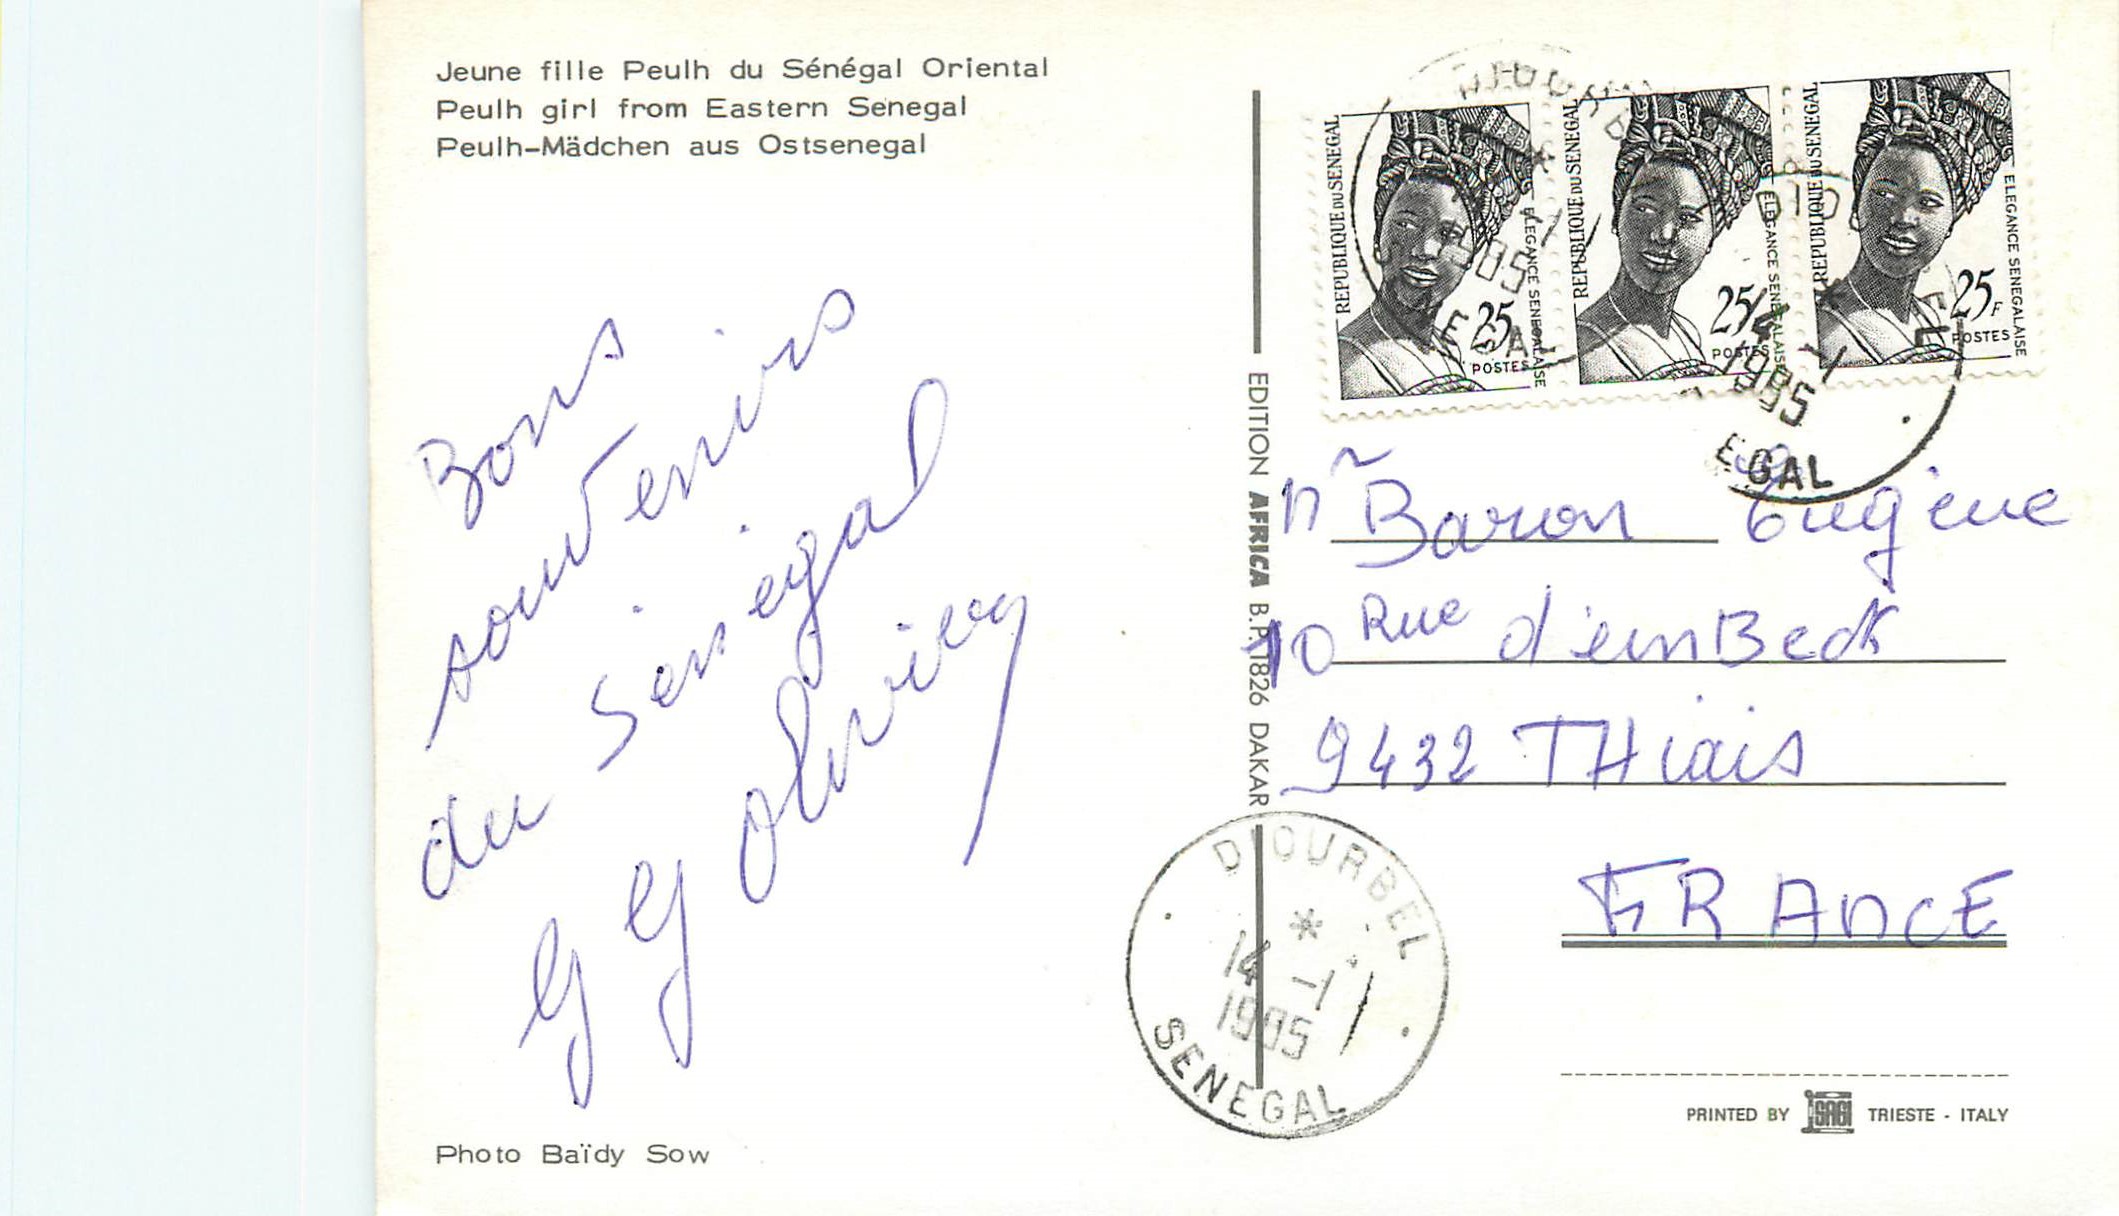 Jeune fille Peulh du Sénégal Oriental
Peulh girl from Eastern Senegal
Peulh-Mädchen aus Ostsenegal
Bons
souvenirs
du Sénégal
Photo Baïdy Sow
EDITION AFRICA B.P. 1826 DAKAR
REPUBLIQUE DU SENEGAL
ELEGANCE SENEGALAISE
25
POSTES
REPUBLIQUE DU SENEGAL
ELEGANCE SENEGALAISE
25F
POSTES
REPUBLIQUE DU SENEGAL
ELEGANCE SENEGALAISE
25F
POSTES
14 -1
1995
EGAL
Mr Baron Eugène
10 Rue d'einBeck
9432 THiais
FRANCE
DIOURBEL
*
14 -1
1995
SENEGAL
PRINTED BY SAGI TRIESTE - ITALY